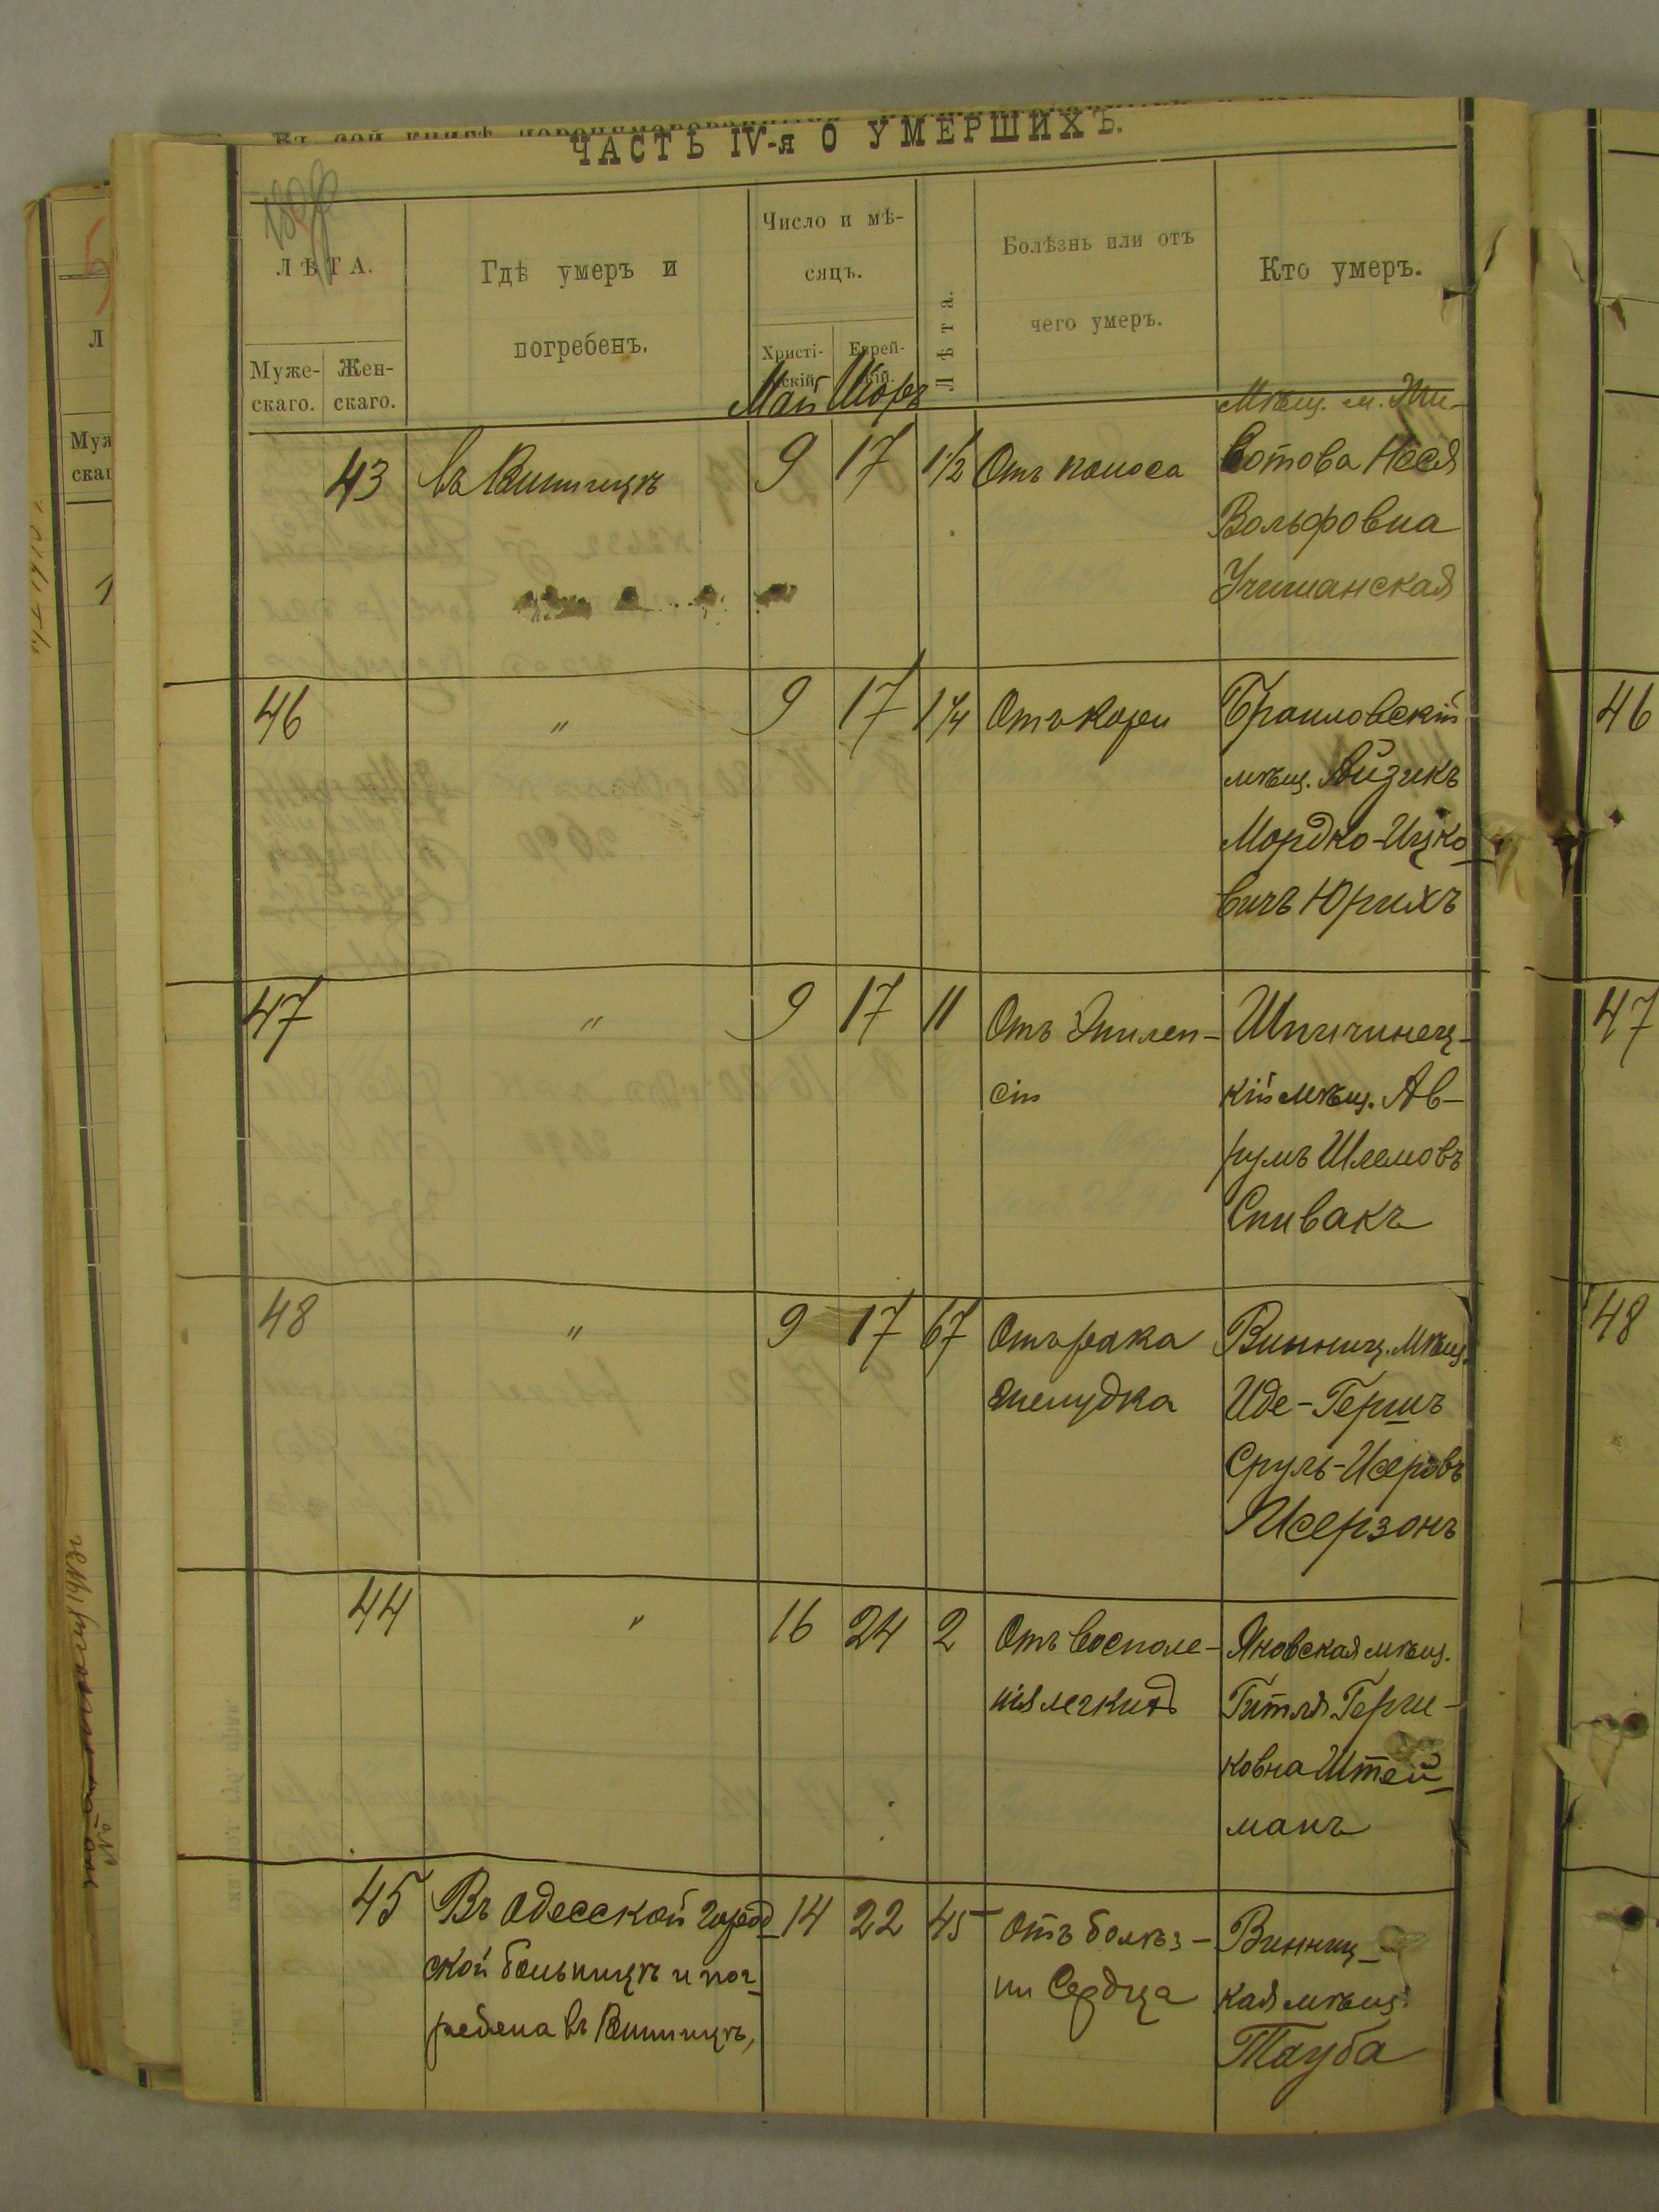 ЧАСТЬ IV-я О УМЕРШИХЪ.
ЛѢТА.
Муже-
скаго.
Жен-
скаго.
Гдѣ умеръ и
погребенъ.
Число и мѣ-
сяцъ.
Христі-
скій
Еврей-
кій.
Май Іюоръ
Лѣта.
Болѣзнь или отъ
чего умеръ.
Кто умеръ.
43 въ Винницѣ 9 17 1½ Отъ поноса
Мѣщ. м. Жи-
вотова Нася
Вольфовна
Учишанская
46 " 9 17 1¼ Отъ кори
Браиловскій
мѣщ. Айзикъ
Мордко-Ицко-
вичъ Юрихъ
47 " 9 17 11 Отъ Эпилеп-
сіи
Шпичинец-
кій мѣщ. Ав-
румъ Шлемовъ
Спивакъ
48 " 9 17 67 Отъ рака
желудка
Винниц. мѣщ.
Иде-Гершъ
Сруль-Исеровъ
Исерзонъ
44 " 16 24 2 Отъ восполе-
нія легкихъ
Яновская мѣщ.
Гитля Герш-
ковна Штей-
манъ
45 Въ Одесской город-
ской больницѣ и пог-
ребена въ Винницѣ,
14 22 45 Отъ болѣз-
ни Сердца
Винниц-
кая мѣщ.
Тауба
46
47
48